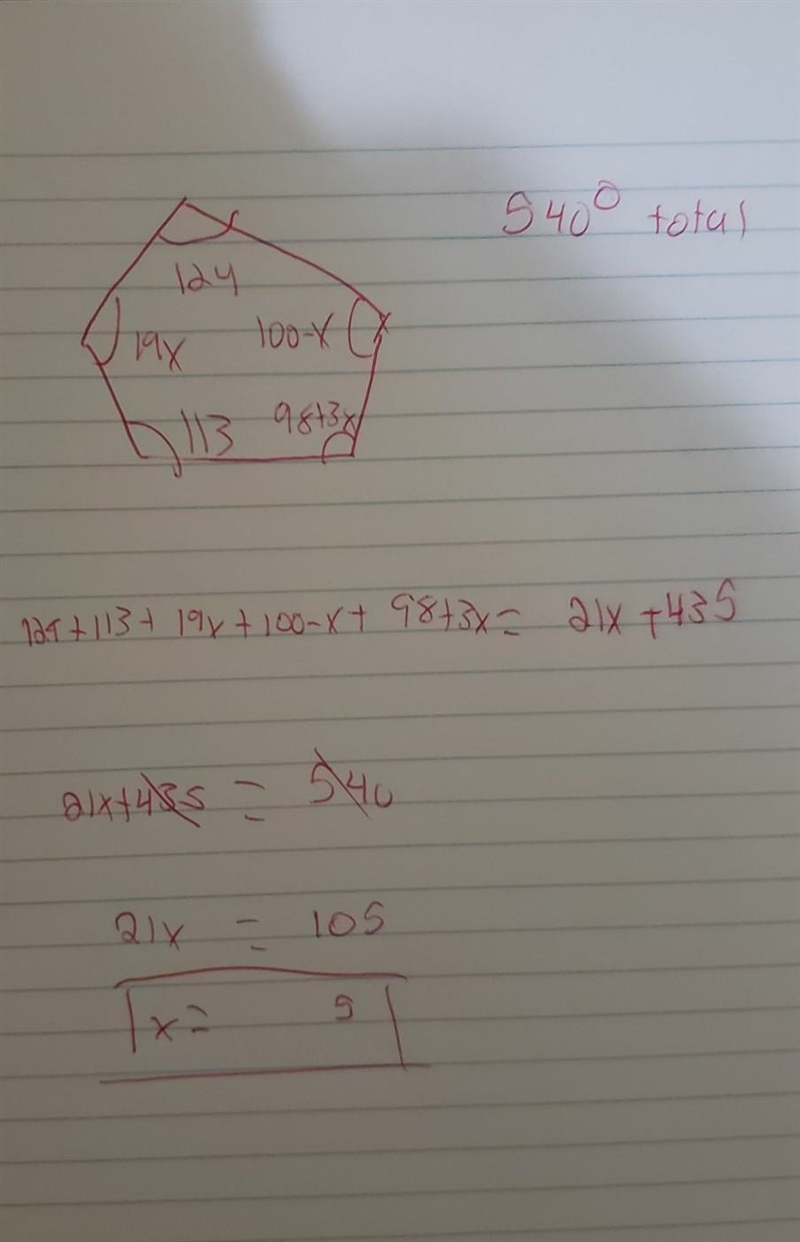 540° total
124
19x 100-x
113 98+3x
124+113+19x+100-x+98+3x= 21x+435
21x+435 = 540
21x = 105
x= 5